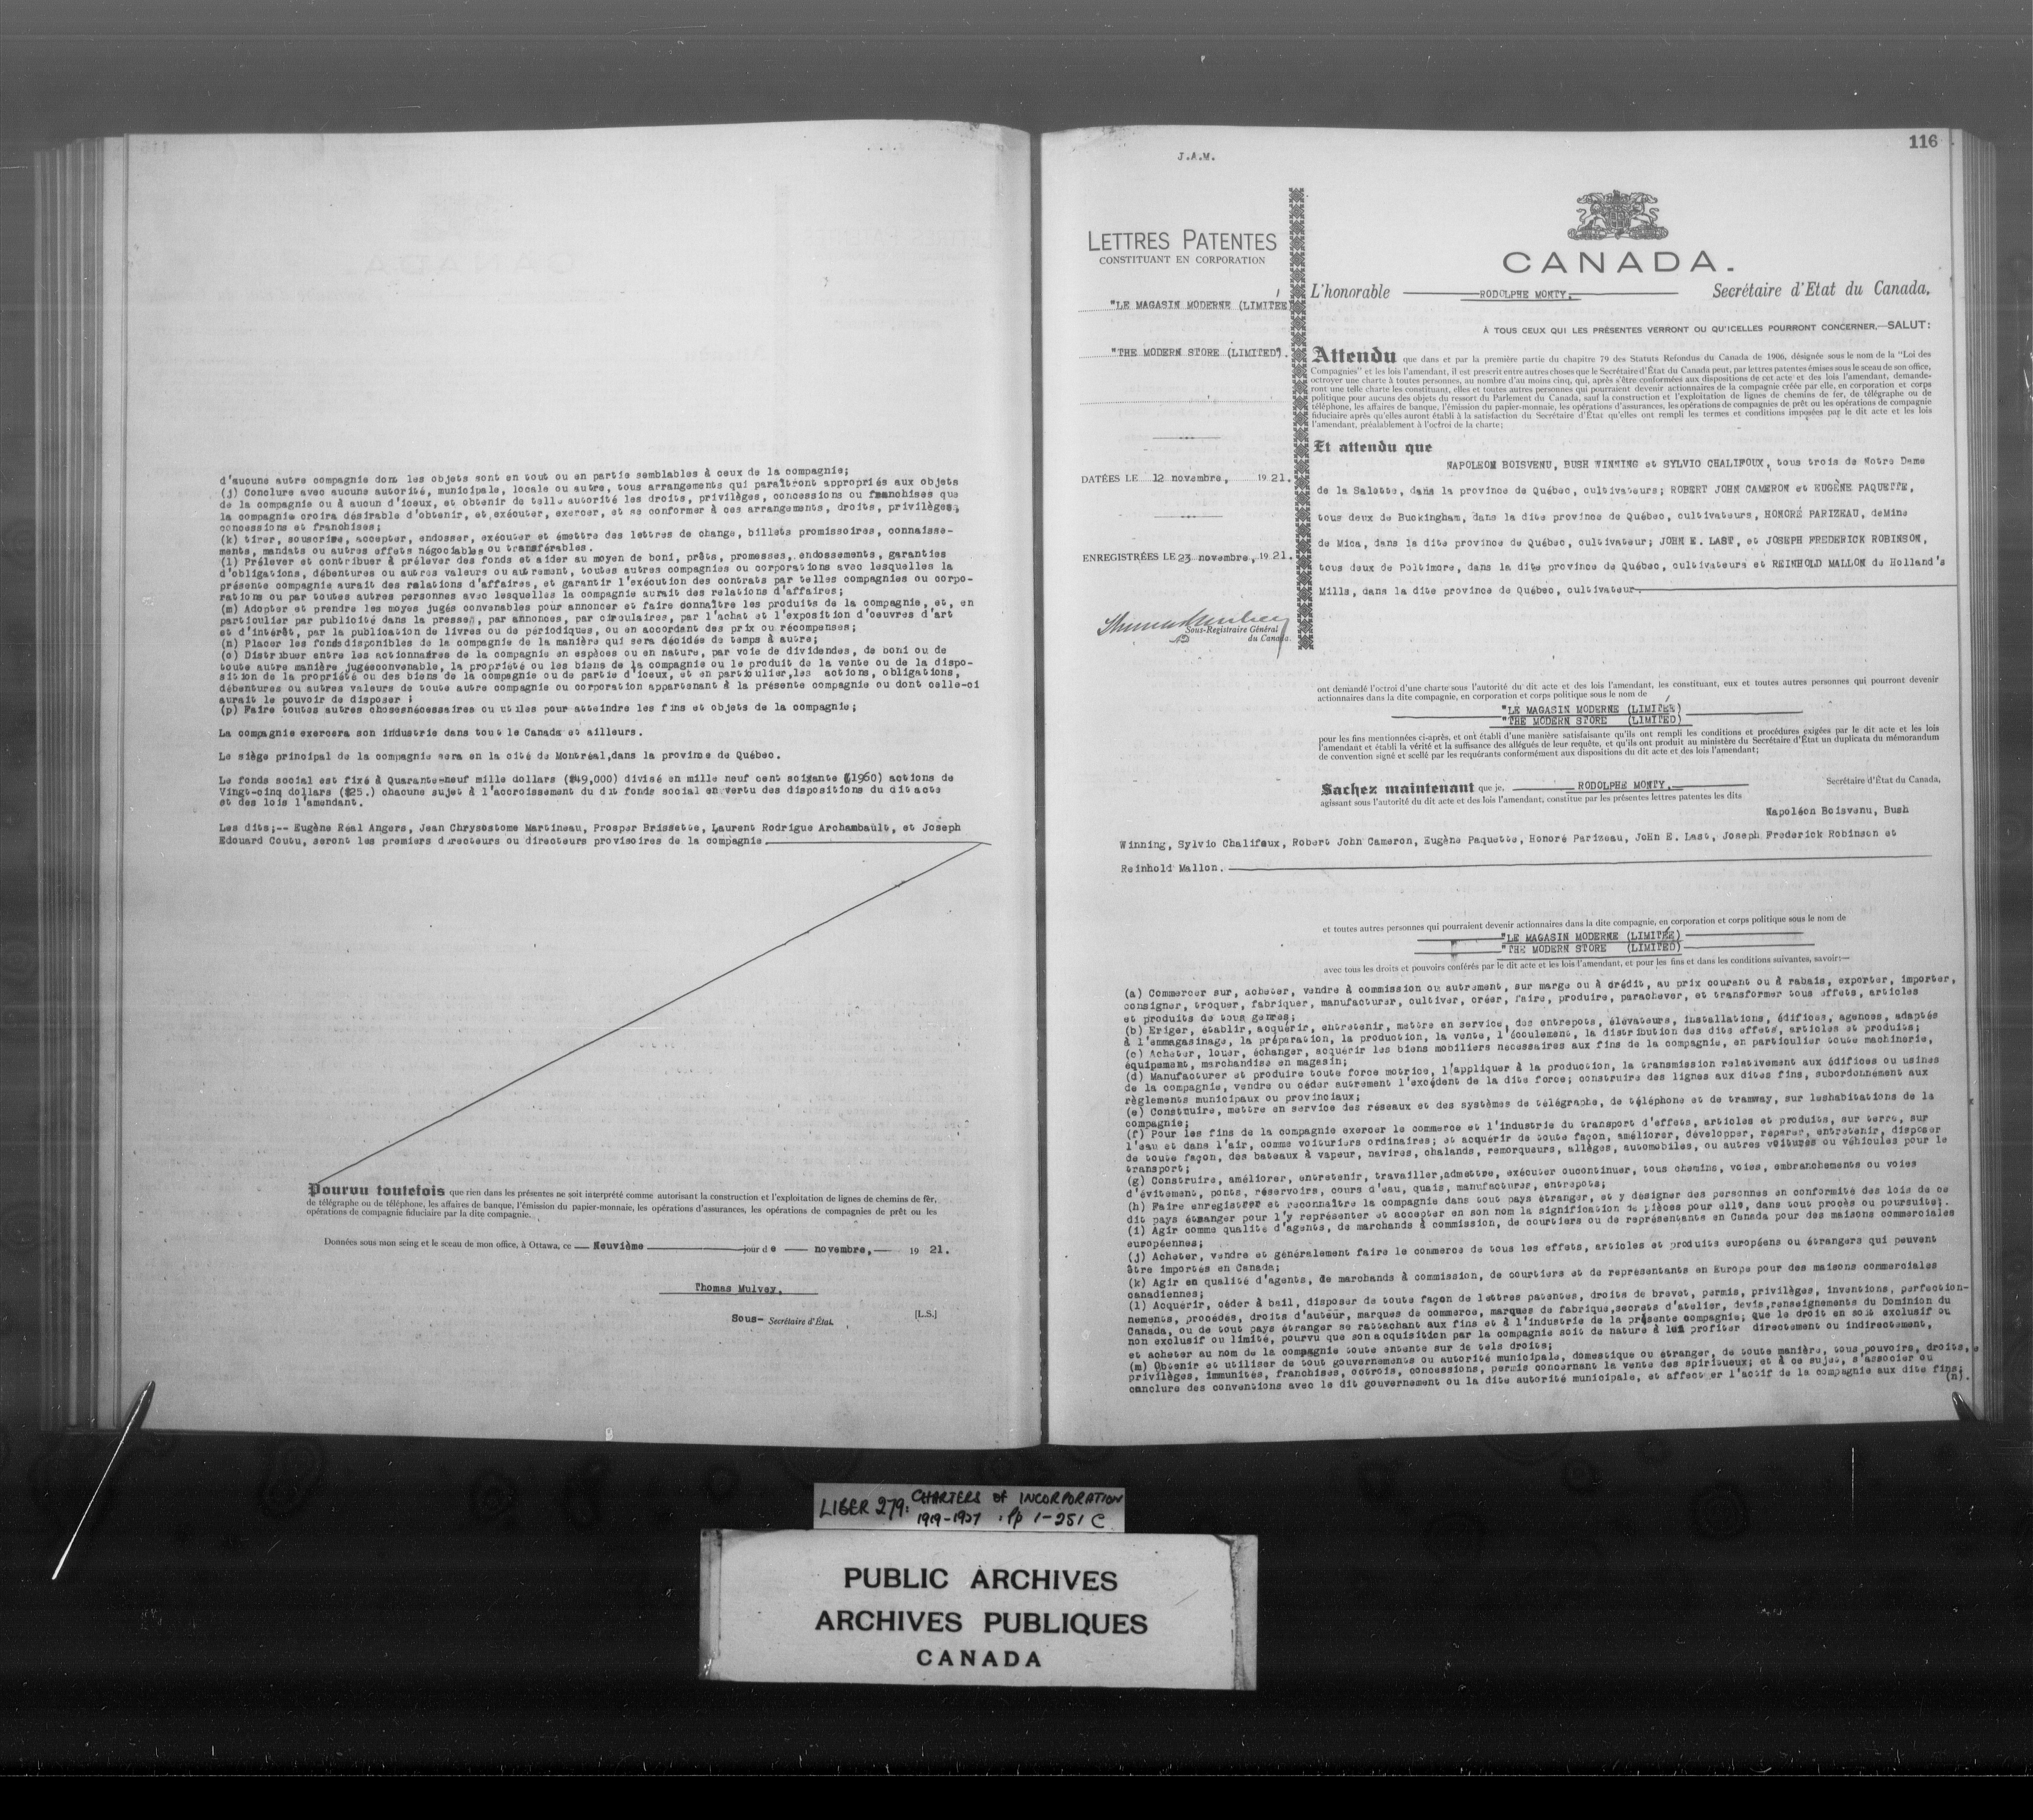 d'aucune autre compagnie dont les objets sont en tout ou en partie semblables à ceux de la compagnie;
(j) Conclure avec aucune autorité, municipale, locale ou autre, tous arrangements qui paraîtront appropriés aux objets
de la compagnie ou à aucun d'iceux, et obtenir de telle autorité les droits, privilèges, concessions ou franchises que
la compagnie croira désirable d'obtenir, et exécuter, exercer, et se conformer à ces arrangements, droits, privilèges,
concessions et franchises;
(k) tirer, souscrire, accepter, endosser, exécuter et émettre des lettres de change, billets promissoires, connaisse-
ments, mandats ou autres effets négociables ou transférables.
(l) Prélever et contribuer à prélever des fonds et aider au moyen de boni, prêts, promesses, endossements, garanties
d'obligations, débentures ou autres valeurs ou autrement, toutes autres compagnies ou corporations avec lesquelles la
présente compagnie aurait des relations d'affaires, et garantir l'exécution des contrats par telles compagnies ou corpo-
rations ou par toutes autres personnes avec lesquelles la compagnie aurait des relations d'affaires;
(m) Adopter et prendre les moyes jugés convenables pour annoncer et faire connaître les produits de la compagnie, et, en
particulier par publicité dans la presse, par annonces, par circulaires, par l'achat et l'exposition d'oeuvres d'art
et d'intérêt, par la publication de livres ou de périodiques, ou en accordant des prix ou récompenses;
(n) Placer les fonds disponibles de la compagnie de la manière qui sera décidée de temps à autre;
(o) Distribuer entre les actionnaires de la compagnie en espèces ou en nature, par voie de dividendes, de boni ou de
toute autre manière jugéeconvenable, la propriété ou les biens de la compagnie ou le produit de la vente ou de la dispo-
sition de la propriété ou des biens de la compagnie ou de partie d'iceux, et en particulier,les actions, obligations,
débentures ou autres valeurs de toute autre compagnie ou corporation appartenant à la présente compagnie ou dont celle-ci
aurait le pouvoir de disposer ;
(p) Faire toutes autres chosesnécessaires ou utiles pour atteindre les fins et objets de la compagnie;
La compagnie exercera son industrie dans tout le Canada et ailleurs.
Le siège principal de la compagnie sera en la cité de Montréal,dans la province de Québec.
Le fonds social est fixé à Quarante-neuf mille dollars ($49,000) divisé en mille neuf cent soixante (1960) actions de
Vingt-cinq dollars ($25.) chacune sujet à l'accroissement du dit fonds social en vertu des dispositions du dit acte
et des lois l'amendant.
Les dits;-- Eugène Réal Angers, Jean Chrysostome Martineau, Prosper Brissette, Laurent Rodrigue Archambault, et Joseph
Edouard Coutu, seront les premiers directeurs ou directeurs provisoires de la compagnie.
Pourvu toutefois que rien dans les présentes ne soit interprété comme autorisant la construction et l'exploitation de lignes de chemins de fer,
de télégraphe ou de téléphone, les affaires de banque, l'émission du papier-monnaie, les opérations d'assurances, les opérations de compagnies de prêt ou les
opérations de compagnie fiduciaire par la dite compagnie.
Données sous mon seing et le sceau de mon office, à Ottawa, ce Neuvième jour de novembre, 19 21.
Thomas Mulvey,
Sous- Secrétaire d'État.
[L.S.]
116
J.A.M.
LETTRES PATENTES
CONSTITUANT EN CORPORATION
"LE MAGASIN MODERNE (LIMITÉE
"THE MODERN STORE (LIMITED".
DATÉES LE 12 novembre, 19 21.
ENREGISTRÉES LE 23 novembre, 19 21.
Sous-Registraire Général
du Canada.
CANADA.
L'honorable RODOLPHE MONTY, Secrétaire d'Etat du Canada,
À TOUS CEUX QUI LES PRÉSENTES VERRONT OU QU'ICELLES POURRONT CONCERNER.—SALUT:
Attendu que dans et par la première partie du chapitre 79 des Statuts Refondus du Canada de 1906, désignée sous le nom de la "Loi des
Compagnies" et les lois l'amendant, il est prescrit entre autres choses que le Secrétaire d'État du Canada peut, par lettres patentes émises sous le sceau de son office,
octroyer une charte à toutes personnes, au nombre d'au moins cinq, qui, après s'être conformées aux dispositions de cet acte et des lois l'amendant, demande-
ront une telle charte les constituant, elles et toutes autres personnes qui pourraient devenir actionnaires de la compagnie créée par elle, en corporation et corps
politique pour aucuns des objets du ressort du Parlement du Canada, sauf la construction et l'exploitation de lignes de chemins de fer, de télégraphe ou de
téléphone, les affaires de banque, l'émission du papier-monnaie, les opérations d'assurances, les opérations de compagnies de prêt ou les opérations de compagnie
fiduciaire après qu'elles auront établi à la satisfaction du Secrétaire d'État qu'elles ont rempli les termes et conditions imposées par le dit acte et les lois
l'amendant, préalablement à l'octroi de la charte;
Et attendu que
NAPOLEON BOISVENU, BUSH WINNING et SYLVIO CHALIFOUX, tous trois de Notre Dame
de la Salette, dans la province de Québec, cultivateurs; ROBERT JOHN CAMERON et EUGÈNE PAQUETTE,
tous deux de Buckingham, dans la dite province de Québec, cultivateurs, HONORÉ PARIZEAU, deMine
de Mica, dans la dite province de Québec, cultivateur; JOHN E. LAST, et JOSEPH FREDERICK ROBINSON,
tous deux de Poltimore, dans la dite province de Québec, cultivateurs et REINHOLD MALLON de Holland's
Mills, dans la dite province de Québec, cultivateur
ont demandé l'octroi d'une charte sous l'autorité du dit acte et des lois l'amendant, les constituant, eux et toutes autres personnes qui pourront devenir
actionnaires dans la dite compagnie, en corporation et corps politique sous le nom de
"LE MAGASIN MODERNE (LIMITÉE)
"THE MODERN STORE (LIMITED)
pour les fins mentionnées ci-après, et ont établi d'une manière satisfaisante qu'ils ont rempli les conditions et procédures exigées par le dit acte et les lois
l'amendant et établi la vérité et la suffisance des allégués de leur requête, et qu'ils ont produit au ministère du Secrétaire d'État un duplicata du mémorandum
de convention signé et scellé par les requérants conformément aux dispositions du dit acte et des lois l'amendant;
Sachez maintenant que je, RODOLPHE MONTY, Secrétaire d'État du Canada,
agissant sous l'autorité du dit acte et des lois l'amendant, constitue par les présentes lettres patentes les dits
Napoléon Boisvenu, Bush
Winning, Sylvio Chalifaux, Robert John Cameron, Eugène Paquette, Honoré Parizeau, John E. Last, Joseph Frederick Robinson et
Reinhold Mallon.
et toutes autres personnes qui pourraient devenir actionnaires dans la dite compagnie, en corporation et corps politique sous le nom de
"LE MAGASIN MODERNE (LIMITÉE)
"THE MODERN STORE (LIMITED)
avec tous les droits et pouvoirs conférés par le dit acte et les lois l'amendant, et pour les fins et dans les conditions suivantes, savoir:—
(a) Commercer sur, acheter, vendre à commission ou autrement, sur marge ou à crédit, au prix courant ou à rabais, exporter, importer,
consigner, troquer, fabriquer, manufacturer, cultiver, créer, faire, produire, parachever, et transformer tous effets, articles
et produits de tous genres;
(b) Eriger, établir, acquérir, entretenir, mettre en service, des entrepots, élévateurs, installations, édifices, agences, adaptés
à l'emmagasinage, la préparation, la production, la vente, l'écoulement, la distribution des dits effets, articles et produits;
(c) Acheter, louer, échanger, acquérir les biens mobiliers nécessaires aux fins de la compagnie, en particulier toute machinerie,
équipement, marchandise en magasin;
(d) Manufacturer et produire toute force motrice, l'appliquer à la production, la transmission relativement aux édifices ou usines
de la compagnie, vendre ou céder autrement l'excédent de la dite force; construire des lignes aux dites fins, subordonnément aux
règlements municipaux ou provinciaux;
(e) Construire, mettre en service des réseaux et des systèmes de télégraphe, de téléphone et de tramway, sur leshabitations de la
compagnie;
(f) Pour les fins de la compagnie exercer le commerce et l'industrie du transport d'effets, articles et produits, sur terre, sur
l'eau et dans l'air, comme voituriers ordinaires; et acquérir de toute façon, améliorer, développer, réparer, entretenir, disposer
de toute façon, des bateaux à vapeur, navires, chalands, remorqueurs, allèges, automobiles, ou autres voitures ou véhicules pour le
transport;
(g) Construire, améliorer, entretenir, travailler,admettre, exécuter oucontinuer, tous chemins, voies, embranchements ou voies
d'évitement, ponts, réservoirs, cours d'eau, quais, manufactures, entrepots;
(h) Faire enregistrer et reconnaître la compagnie dans tout pays étranger, et y désigner des personnes en conformité des lois de ce
dit pays étranger pour l'y représenter et accepter en son nom la signification de pièces pour elle, dans tout procès ou poursuite;
(i) Agir comme qualité d'agents, de marchands à commission, de courtiers ou de représentants en Canada pour des maisons commerciales
européennes;
(j) Acheter, vendre et généralement faire le commerce de tous les effets, articles et produits européens ou étrangers qui peuvent
être importés en Canada;
(k) Agir en qualité d'agents, de marchands à commission, de courtiers et de représentants en Europe pour des maisons commerciales
canadiennes;
(l) Acquérir, céder à bail, disposer de toute façon de lettres patentes, droits de brevet, permis, privilèges, inventions, perfection-
nements, procédés, droits d'auteur, marques de commerce, marques de fabrique,secrets d'atelier, devis,renseignements du Dominion du
Canada, ou de tout pays étranger se rattachant aux fins et à l'industrie de la présente compagnie; que le droit en soit exclusif ou
non exclusif ou limité, pourvu que son acquisition par la compagnie soit de nature à lui profiter directement ou indirectement,
et acheter au nom de la compagnie toute entente sur de tels droits;
(m) Obtenir et utiliser de tout gouvernements ou autorité municipale, domestique ou étranger, de toute manière, tous pouvoirs, droits,
privilèges, immunités, franchises, octrois, concessions, permis concernant la vente des spiritueux; et à ce sujet, s'associer ou
canclure des conventions avec le dit gouvernement ou la dite autorité municipale, et affecter l'actif de la compagnie aux dite fins;
(n).
LIBER 279: CHARTERS of INCORPORATION
1919-1927 : Pp 1-251 C
PUBLIC ARCHIVES
ARCHIVES PUBLIQUES
CANADA